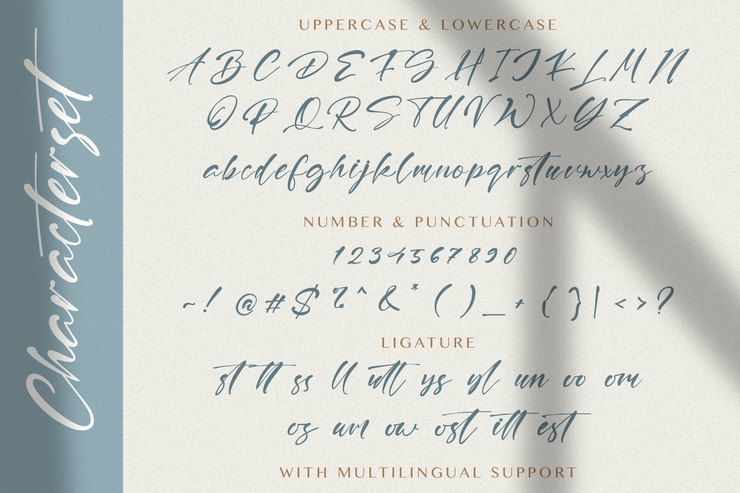 Characterset
UPPERCASE & LOWERCASE
A B C D E F G H I J K L M N
O P Q R S T U V W X Y Z
abcdefghijklmnopqrstuvwxyz
NUMBER & PUNCTUATION
1 2 3 4 5 6 7 8 9 0
~ ! @ # $ % ^ & * ( ) _ + { } | < > ?
LIGATURE
st tt ss ll utt ys yl un oo om
os um ow ost itt est
WITH MULTILINGUAL SUPPORT